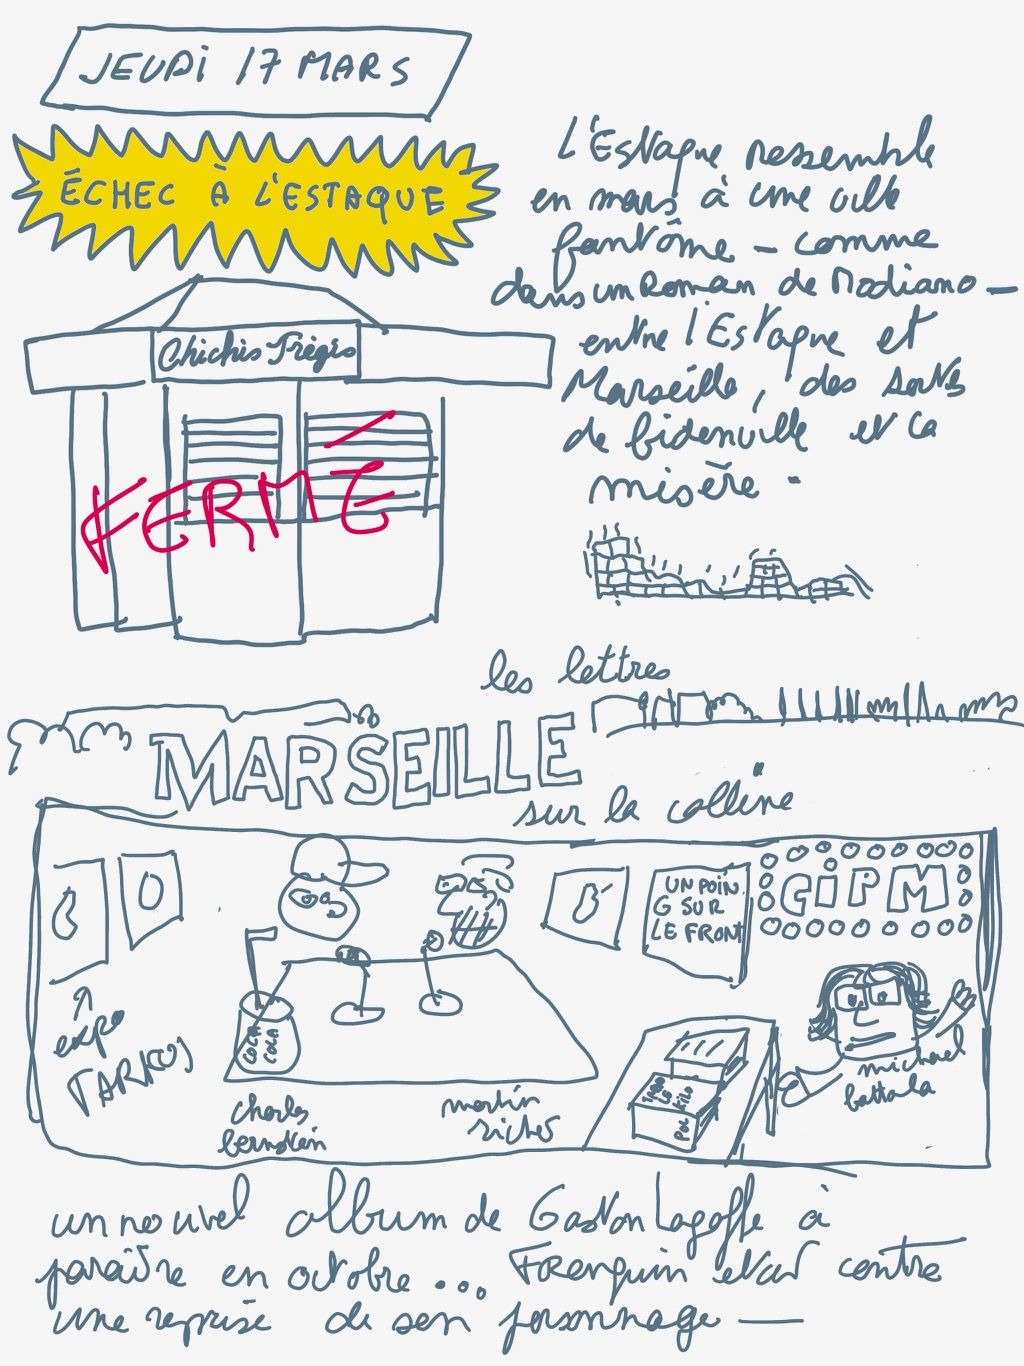 JEUDI 17 MARS
ÉCHEC À L'ESTAQUE
L'Estaque ressemble
en mars à une ville
fantôme – comme
dans un Roman de Modiano –
entre l'Estaque et
Marseille, des sortes
de bidonville et la
misère.
Chichis Frégis
FERMÉ
les lettres
MARSEILLE
sur la colline
UN POIN
G SUR
LE FRONT
CiPM
expo
TARKOS
COCA
COLA
charles
bernstein
martin
richet
LE
KILO
michael
battala
un nouvel album de Gaston Lagaffe à
paraître en octobre... Franquin était contre
une reprise de son personnage —